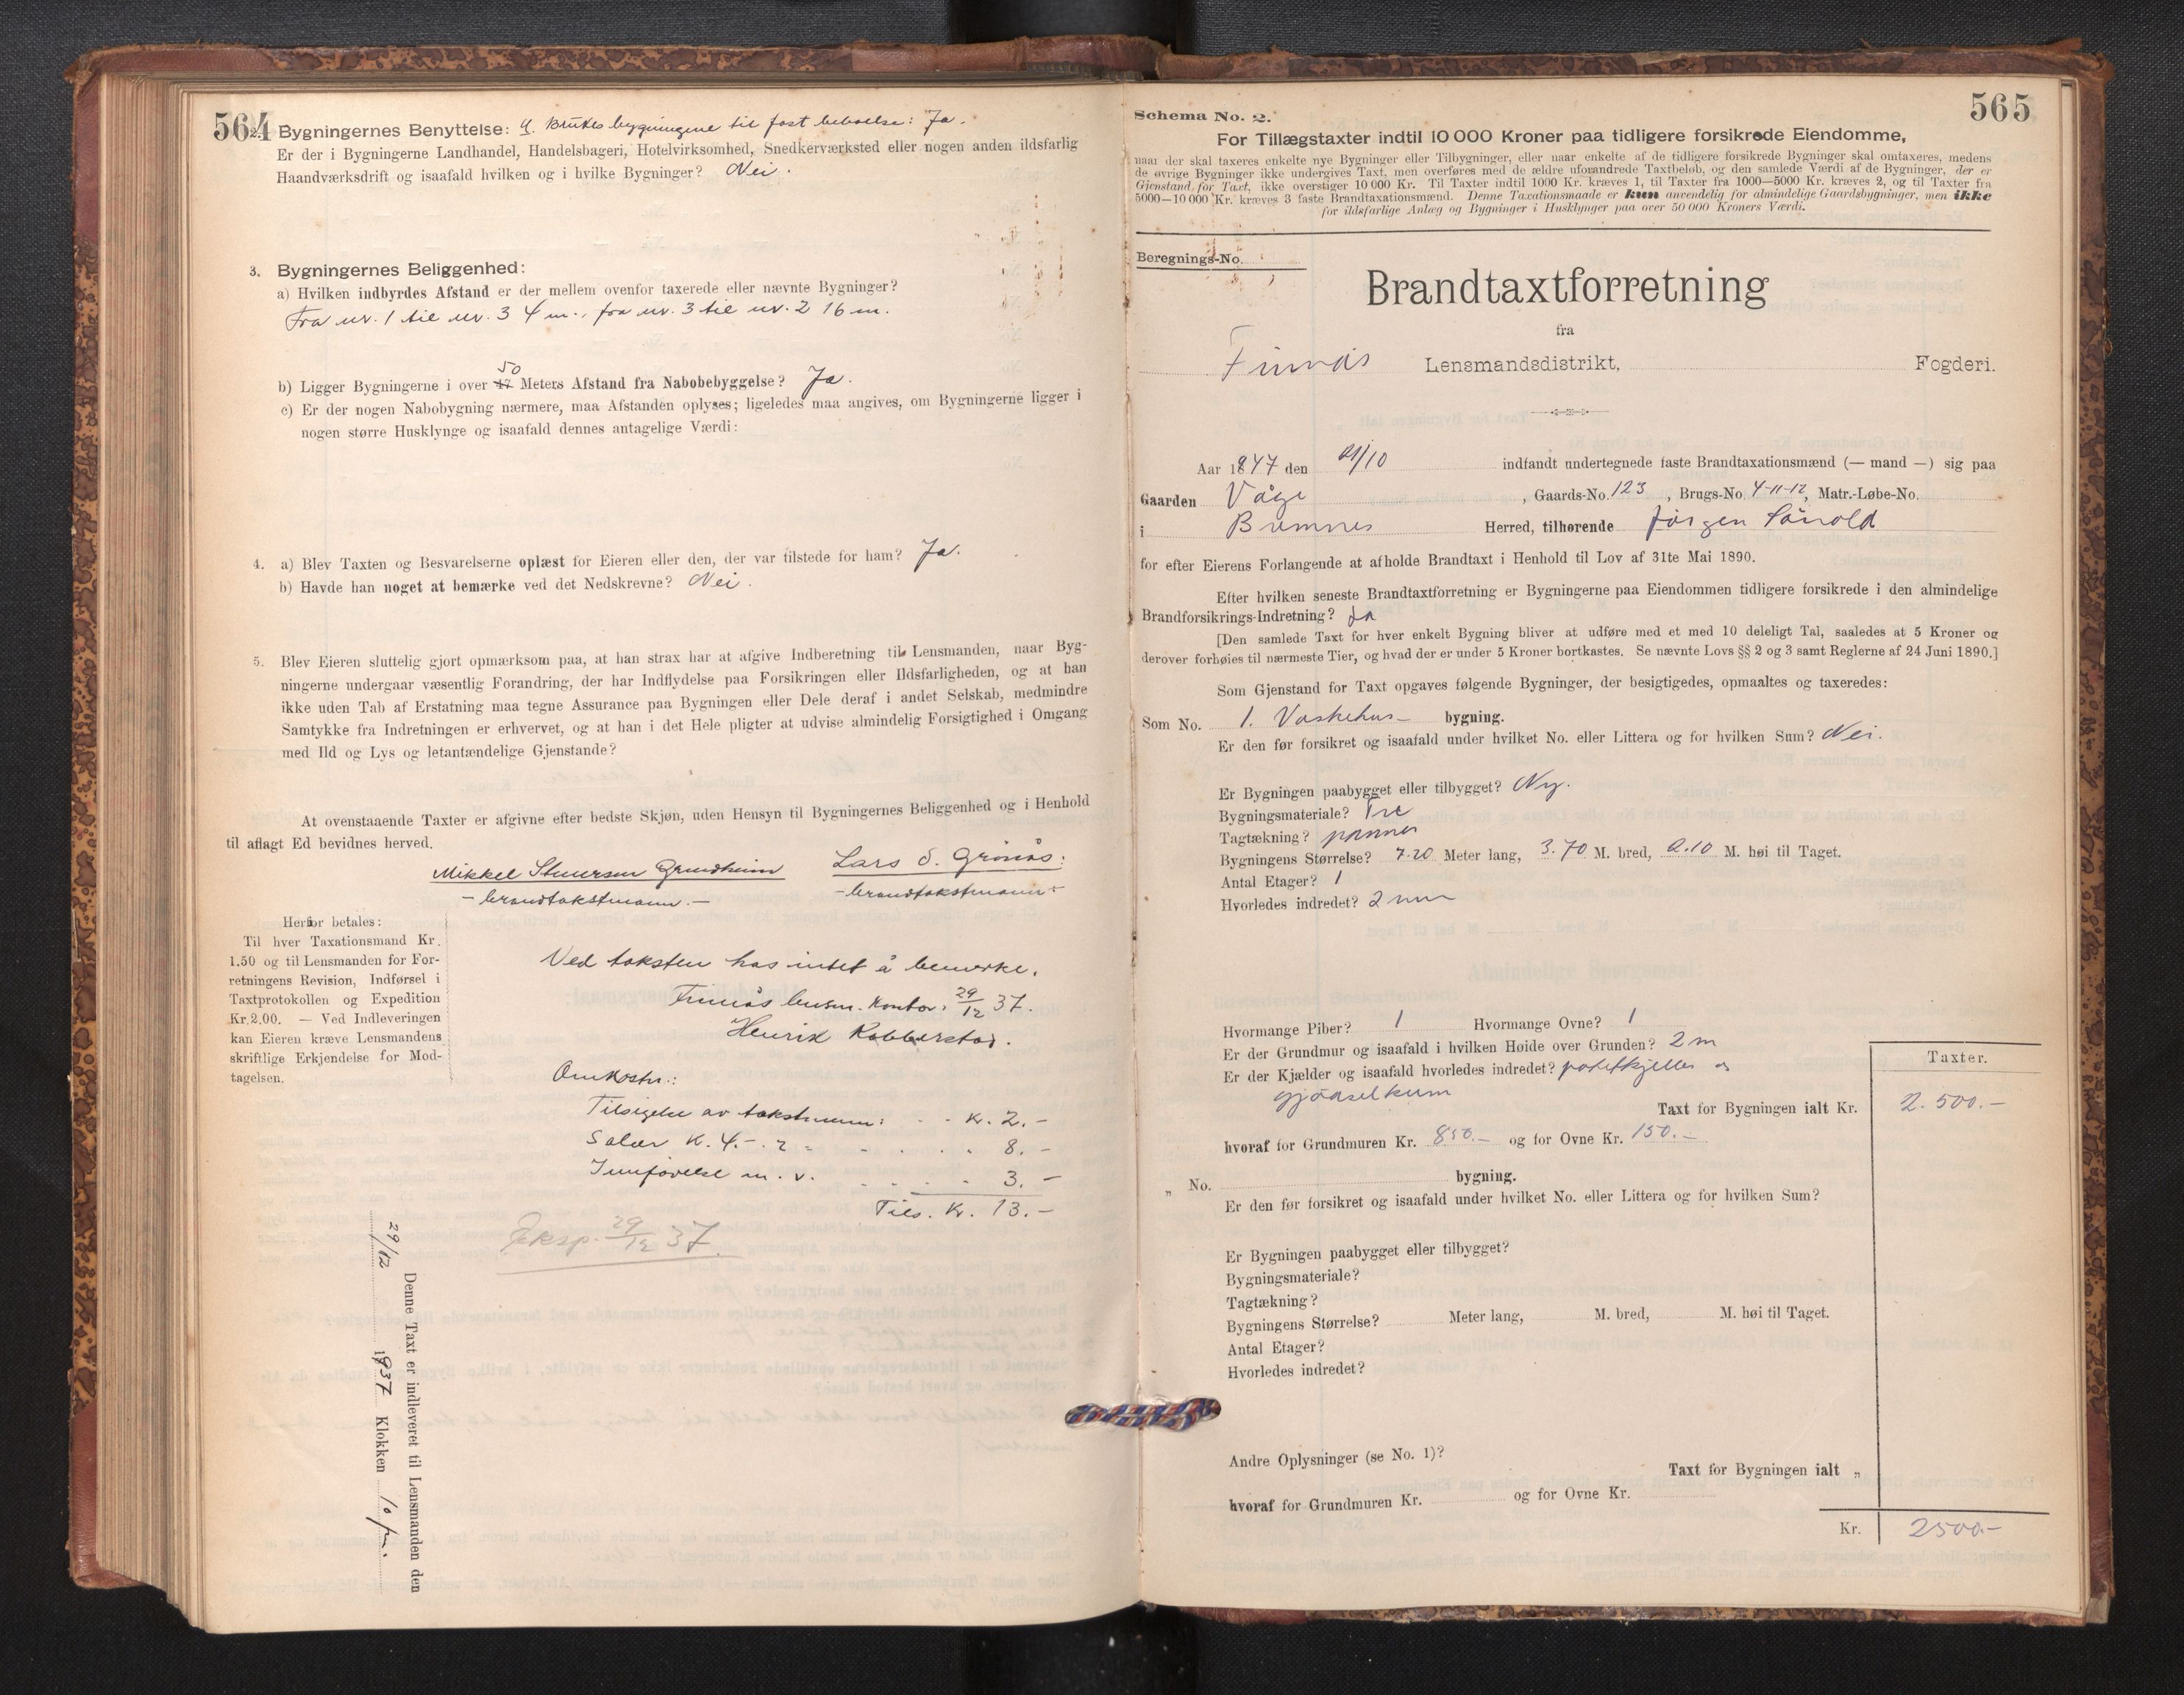 564
2. Bygningernes Benyttelse: Brukes bygningene til fast beboelse: Ja.
Er der i Bygningerne Landhandel, Handelsbageri, Hotelvirksomhed, Snedkerværksted eller nogen anden ildsfarlig
Haandværksdrift og isaafald hvilken og i hvilke Bygninger? Nei.
3. Bygningernes Beliggenhed:
a) Hvilken indbyrdes Afstand er der mellem ovenfor taxerede eller nævnte Bygninger?
Fra nr. 1 til nr. 3 4 m., fra nr. 3 til nr. 2 16 m.
50
b) Ligger Bygningerne i over 17 Meters Afstand fra Nabobebyggelse? Ja.
c) Er der nogen Nabobygning nærmere, maa Afstanden oplyses; ligeledes maa angives, om Bygningerne ligger i
nogen større Husklynge og isaafald dennes antagelige Værdi:
4. a) Blev Taxten og Besvarelserne oplæst for Eieren eller den, der var tilstede for ham? Ja.
b) Havde han noget at bemærke ved det Nedskrevne? Nei.
5. Blev Eieren sluttelig gjort opmærksom paa, at han strax har at afgive Indberetning til Lensmanden, naar Byg-
ningerne undergaar væsentlig Forandring, der har Indflydelse paa Forsikringen eller Ildsfarligheden, og at han
ikke uden Tab af Erstatning maa tegne Assurance paa Bygningen eller Dele deraf i andet Selskab, medmindre
Samtykke fra Indretningen er erhvervet, og at han i det Hele pligter at udvise almindelig Forsigtighed i Omgang
med Ild og Lys og letantændelige Gjenstande?
At ovenstaaende Taxter er afgivne efter bedste Skjøn, uden Hensyn til Bygningernes Beliggenhed og i Henhold
til aflagt Ed bevidnes herved.
Mikkel Grundheim Lars S. Grönås:
- brandtakstmann. - - brandtakstmann -
Herfor betales:
Til hver Taxationsmand Kr.
1.50 og til Lensmanden for For-
retningens Revision, Indførsel i
Taxtprotokollen og Expedition
Kr. 2.00. — Ved Indleveringen
kan Eieren kræve Lensmandens
skriftlige Erkjendelse for Mod-
tagelsen.
Ved taksten has intet å bemerke.
Finnås lensm. kontor: 29/12 37.
Henrik Robberstad.
Omkostn.:
Tilsigelse av takstmenn: . . K. 2.-
Salær K. 4.- . 2 = . . . . 8.-
Innførelse m. v. . . . . 3.-
Tils. Kr. 13.-
Eksp. 29/12 37.
Denne Taxt er indleveret til Lensmanden den
29/12 1937 Klokken 10 fm.
565
Schema No. 2.
For Tillægstaxter indtil 10 000 Kroner paa tidligere forsikrede Eiendomme,
naar der skal taxeres enkelte nye Bygninger eller Tilbygninger, eller naar enkelte af de tidligere forsikrede Bygninger skal omtaxeres, medens
de øvrige Bygninger ikke undergives Taxt, men overføres med de ældre uforandrede Taxtbeløb, og den samlede Værdi af de Bygninger, der er
Gjenstand for Taxt, ikke overstiger 10 000 Kr. Til Taxter indtil 1000 Kr. kræves 1, til Taxter fra 1000—5000 Kr. kræves 2, og til Taxter fra
5000—10 000 Kr. kræves 3 faste Brandtaxationsmænd. Denne Taxationsmaade er kun anvendelig for almindelige Gaardsbygninger, men ikke
for ildsfarlige Anlæg og Bygninger i Husklynger paa over 50 000 Kroners Værdi.
Beregnings-No.
Brandtaxtforretning
fra
Finnås Lensmandsdistrikt, Fogderi.
Aar 1947 den 21/10 indfandt undertegnede faste Brandtaxationsmænd (— mand —) sig paa
Gaarden Våge, Gaards-No. 123, Brugs-No. 4-11-12, Matr.-Løbe-No.
i Bremnes Herred, tilhørende Jørgen
for efter Eierens Forlangende at afholde Brandtaxt i Henhold til Lov af 31te Mai 1890.
Efter hvilken seneste Brandtaxtforretning er Bygningerne paa Eiendommen tidligere forsikrede i den almindelige
Brandforsikrings-Indretning? Ja
[Den samlede Taxt for hver enkelt Bygning bliver at udføre med et med 10 deleligt Tal, saaledes at 5 Kroner og
derover forhøies til nærmeste Tier, og hvad der er under 5 Kroner bortkastes. Se nævnte Lovs §§ 2 og 3 samt Reglerne af 24 Juni 1890.]
Som Gjenstand for Taxt opgaves følgende Bygninger, der besigtigedes, opmaaltes og taxeredes:
Som No. 1. Vaskehus- bygning.
Er den før forsikret og isaafald under hvilket No. eller Littera og for hvilken Sum? Nei.
Er Bygningen paabygget eller tilbygget? Ny.
Bygningsmateriale? Tre
Tagtækning? panner
Bygningens Størrelse? 7.20 Meter lang, 3.70 M. bred, 2.10 M. høi til Taget.
Antal Etager? 1
Hvorledes indredet? 2 rum
Hvormange Piber? 1 Hvormange Ovne? 1
Er der Grundmur og isaafald i hvilken Høide over Grunden? 2 m
Er der Kjælder og isaafald hvorledes indredet? potetkjeller og
gjödselkum
Taxter.
Taxt for Bygningen ialt Kr. 2.500.-
hvoraf for Grundmuren Kr. 850.- og for Ovne Kr. 150.-
„ No. bygning.
Er den før forsikret og isaafald under hvilket No. eller Littera og for hvilken Sum?
Er Bygningen paabygget eller tilbygget?
Bygningsmateriale?
Tagtækning?
Bygningens Størrelse? Meter lang, M. bred, M. høi til Taget.
Antal Etager?
Hvorledes indredet?
Andre Oplysninger (se No. 1)?
Taxt for Bygningen ialt „
hvoraf for Grundmuren Kr. og for Ovne Kr.
Kr. 2500.-